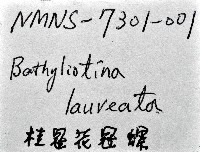 NMNS-7301-001
Bathyliotina
laureata
桂冠花冠螺